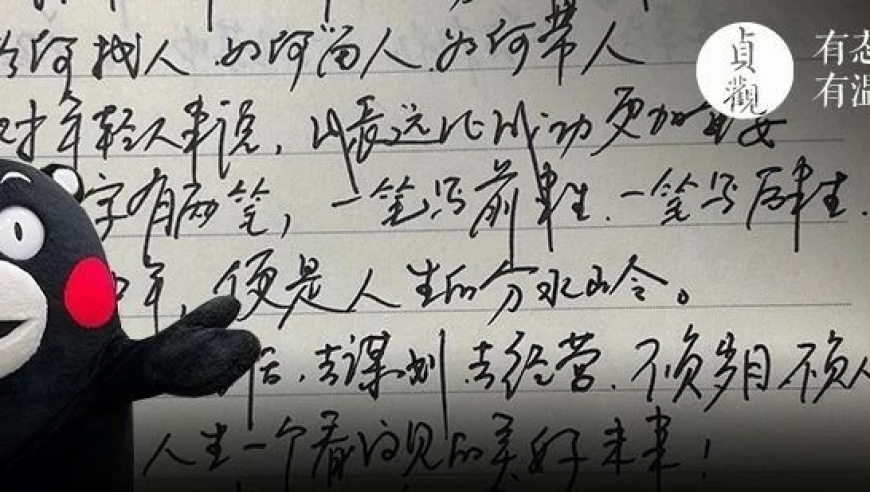 何找人 如何留人 如何带人
对年轻人来说，成长远比成功更加重要
字有两笔，一笔写前半生，一笔写后半生，
年，便是人生的分水岭。
去谋划 去经营，不负岁月 不负人
人生一个看得见的美好未来！
貞觀
有态
有温